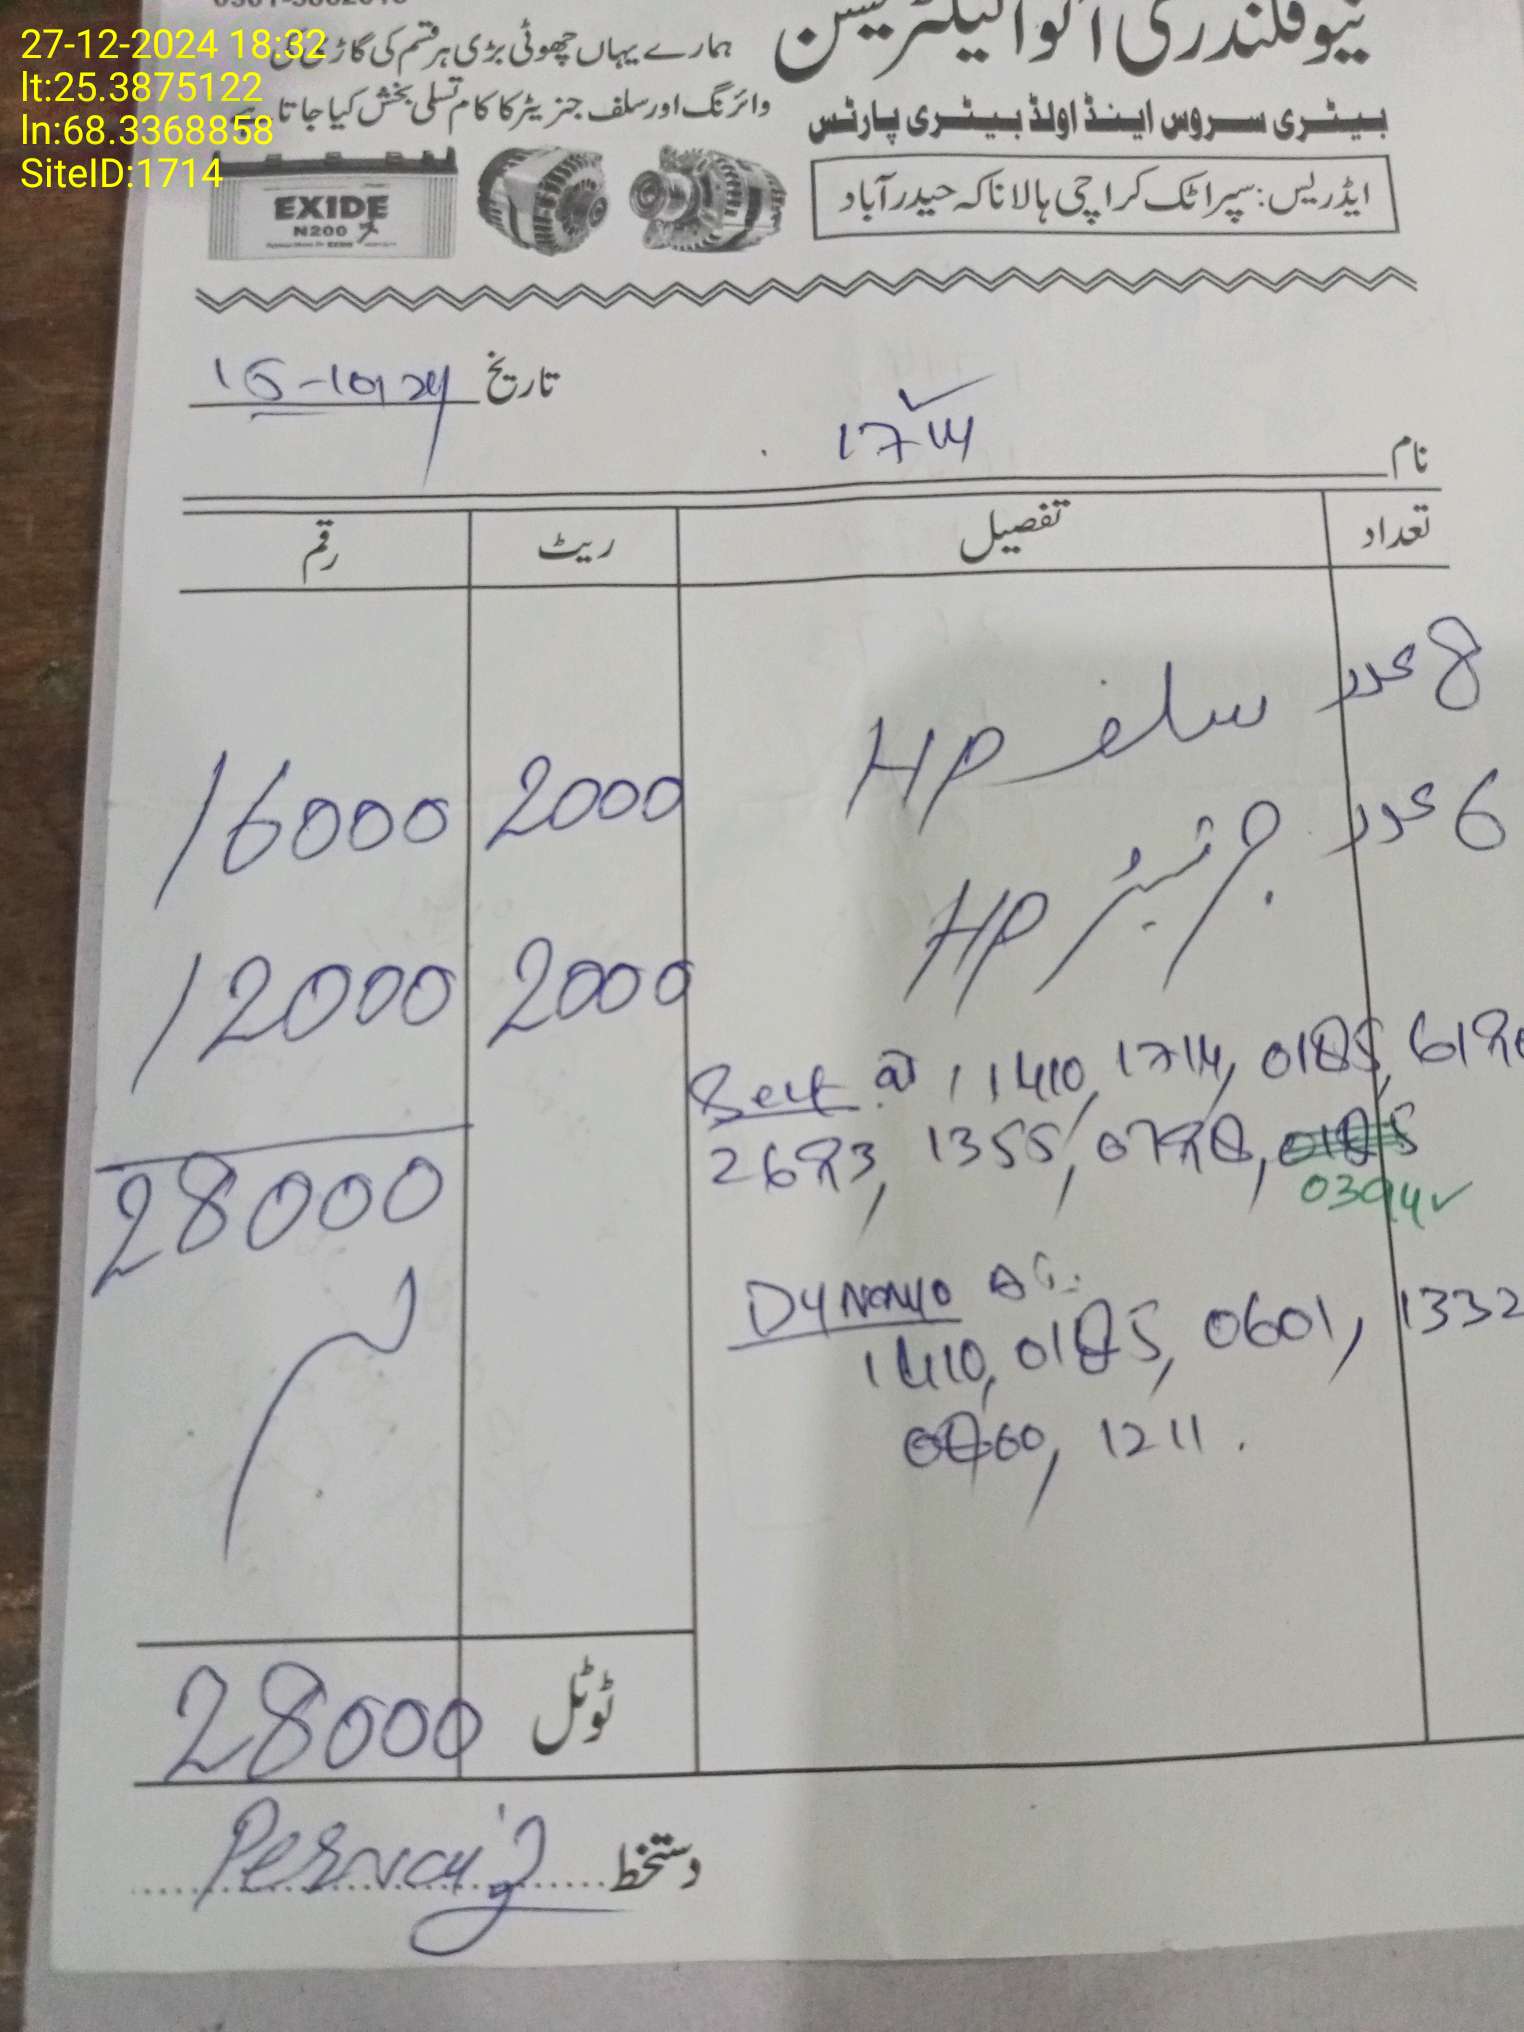 27-12-2024 18:32
lt:25.3875122
ln:68.3368858
SiteID:1714
نیو قلندری آٹو الیکٹریشن
ہمارے یہاں چھوٹی بڑی ہر قسم کی گاڑی کی
وائرنگ اور سلف جنریٹر کا کام تسلی بخش کیا جاتا ہے
بیٹری سروس اینڈ اولڈ بیٹری پارٹس
ایڈریس: سپر اٹک کراچی ہالا ناکہ حیدرآباد
EXIDE
N200
تاریخ 15-10-24
نام 1714
تعداد تفصیل ریٹ رقم
8 عدد سلف HP 2000 16000
6 عدد جنریٹر HP 2000 12000
28000
Self @ 1410, 1714, 0185,
2693, 1355, 0798, 0185
0394✓
Dynamo
1410, 0185, 0601, 1332
1211.
ٹوٹل 28000
دستخط Pervaiz